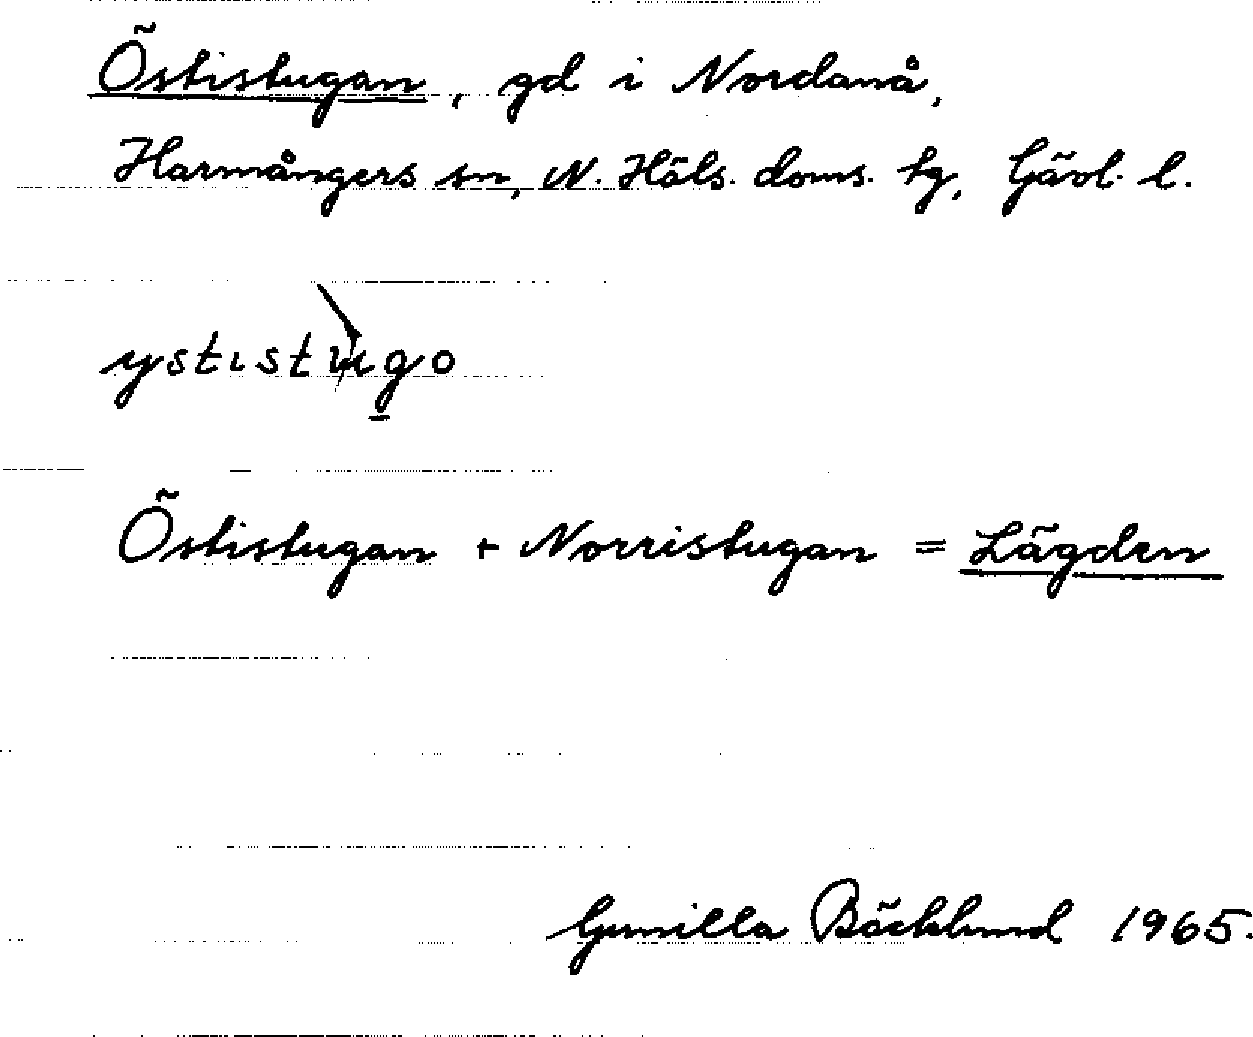 Östistugan, gd i Nordanå,
Harmångers sn, N. Häls. doms. tg, Gävl. l.
ystistùgo
Östistugan + Norristugan = Lägden
Gunilla Bäcklund 1965.